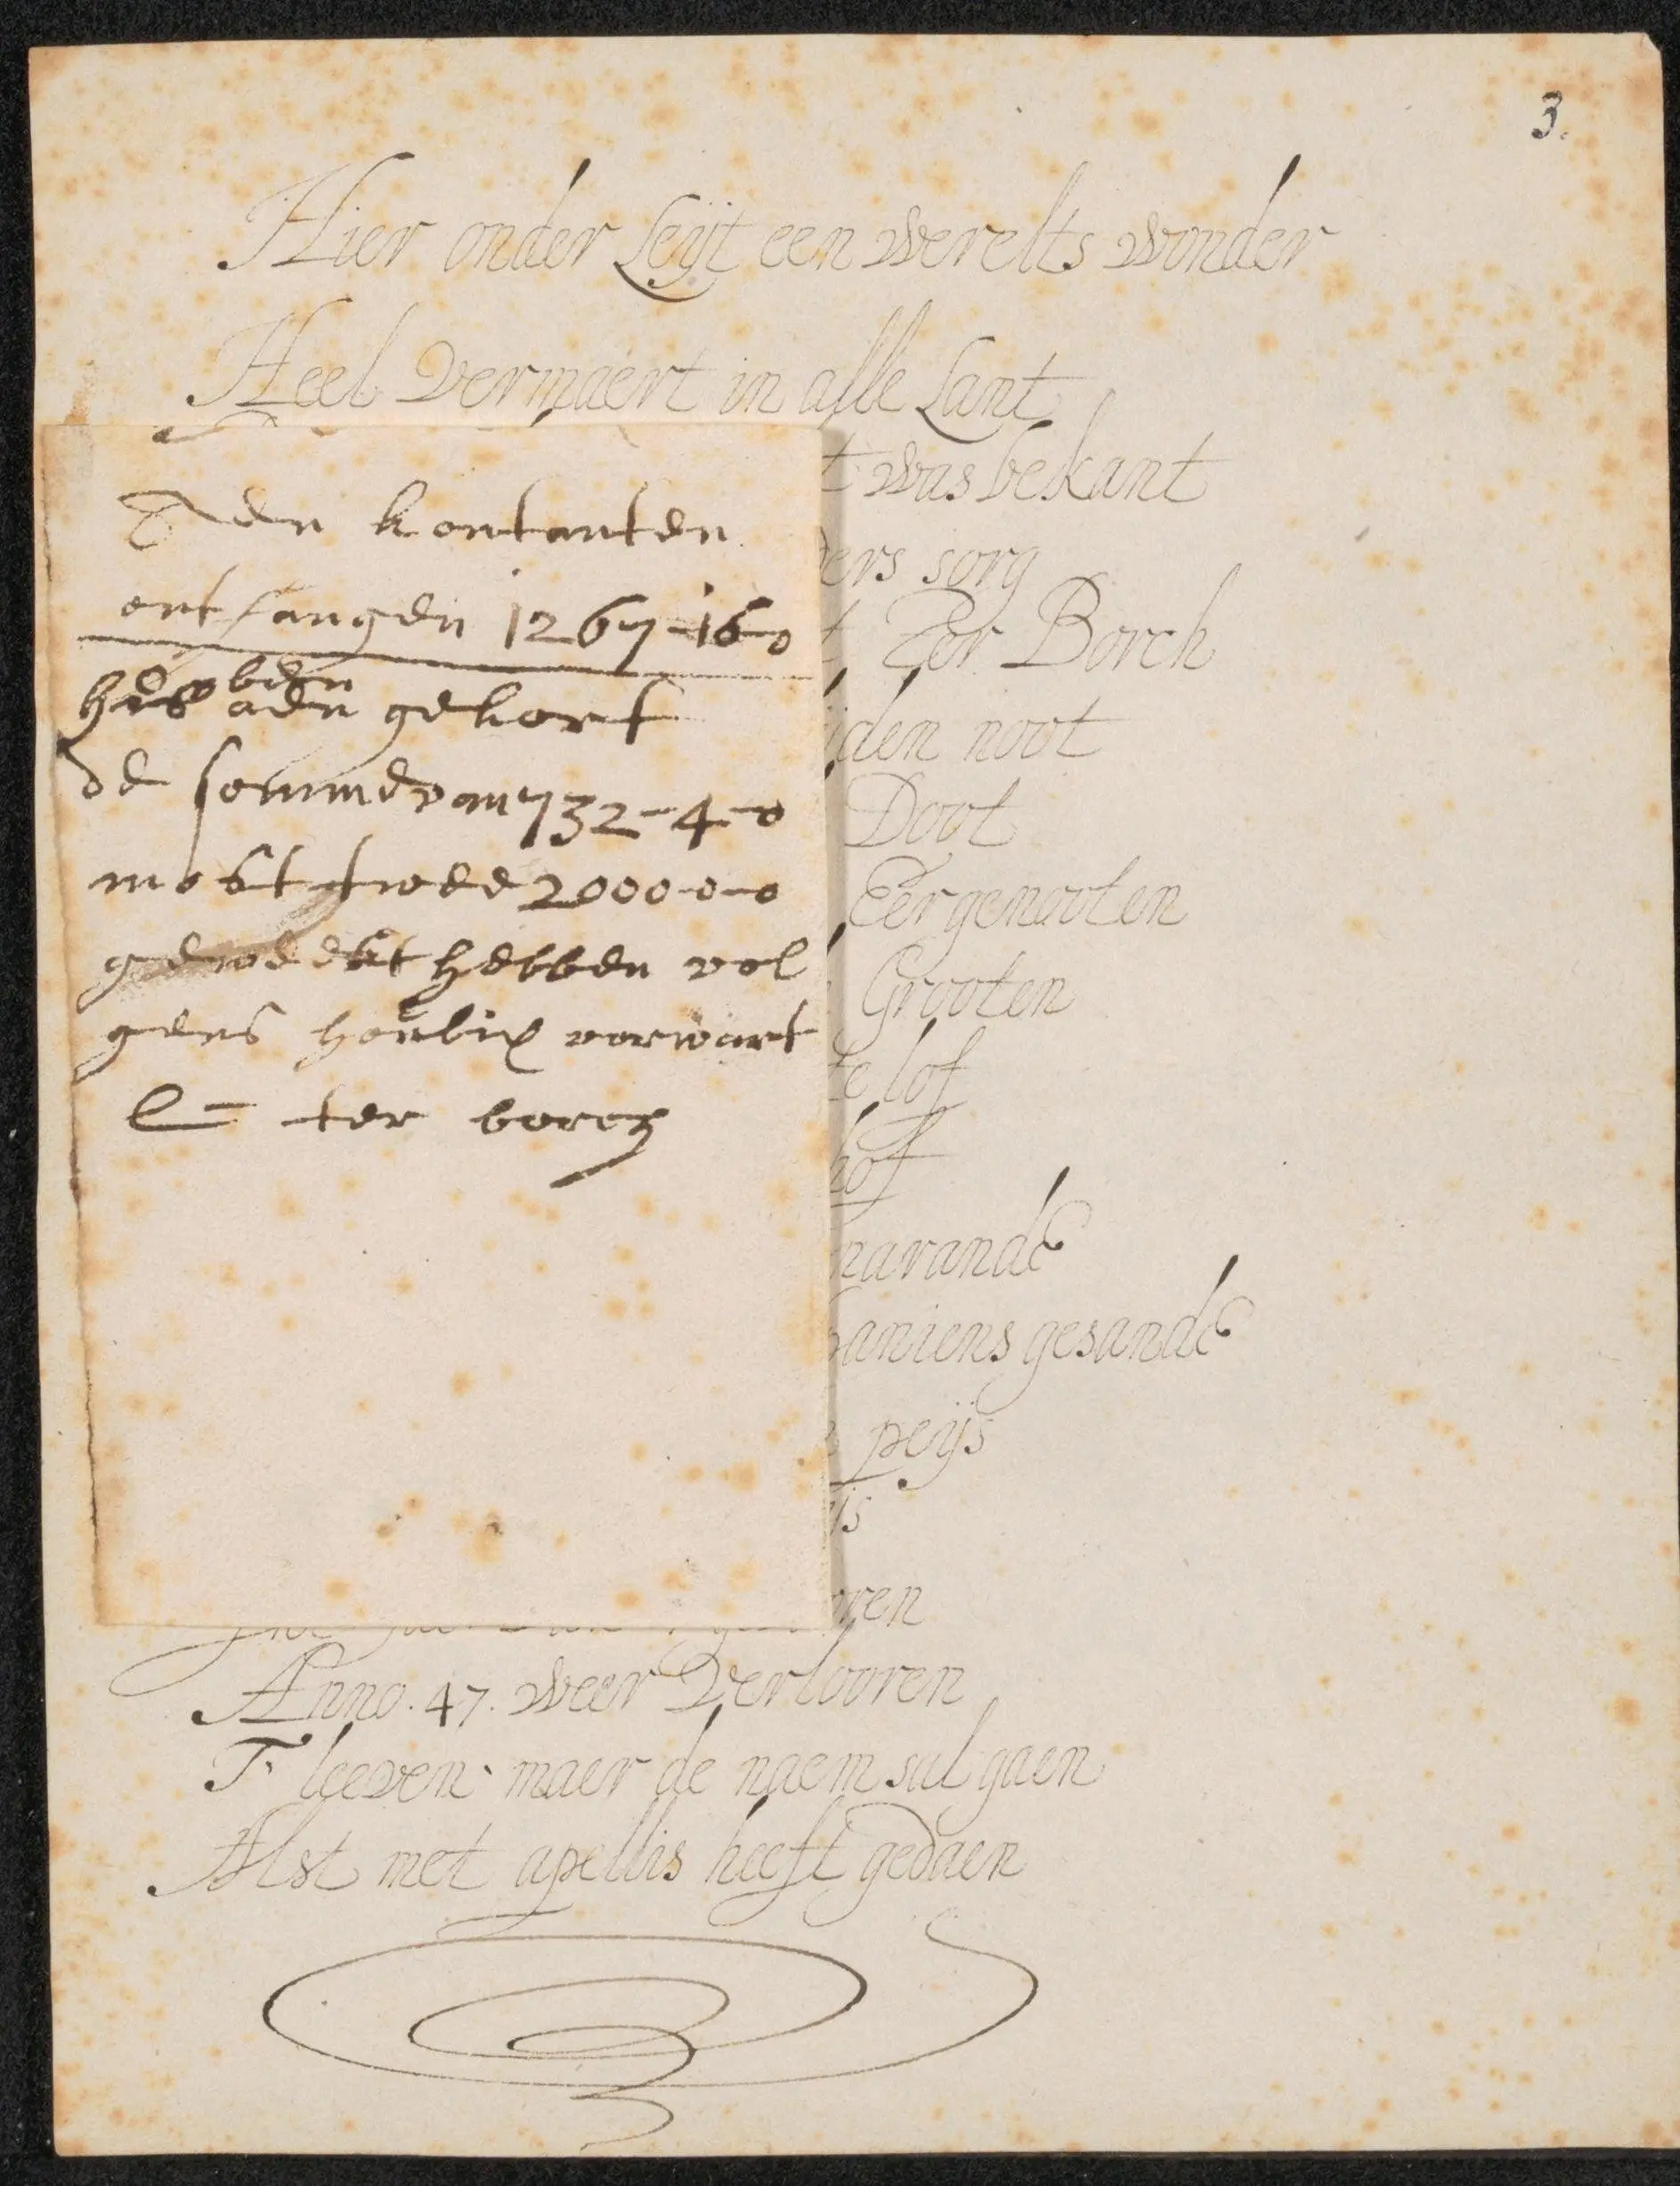 3.
Hier onder Leijt een werelts wonder
Heel vermaert in alle Lant
t was bekant
ers sorg
t Ter Borch
ijden noot
Doot
Eergenooten
Grooten
te lof
hof
narande
aniens gesande
peijs
ijs
oren
Anno. 47. weer verlooren
T' leeven maer de naem sal gaen
Alst met apellis heeft gedaen
Aen kontanten
ontfangen 1267-16-0
hebben
aen gekort
de somme van 732-4-0
most twee 2000-0-0
geweest hebben vol
gens houlix vorwart
ter borch